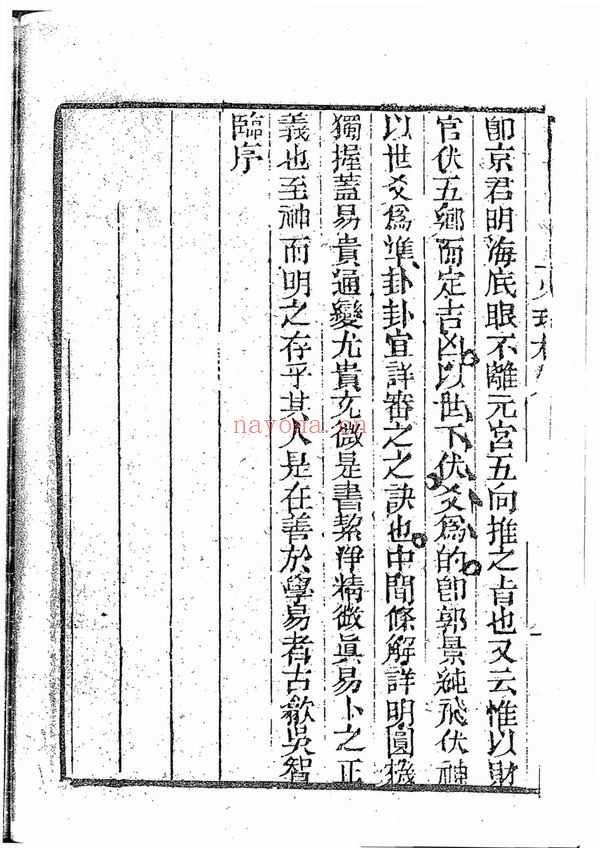 卽京君明海底眼不離元宮五向推之肯也又云惟以財
官伏五鄉而定吉凶以世下伏爻爲的卽郭景純飛伏神
以世爻爲準卦卦宜詳審之之訣也中間條解詳明圓機
獨握蓋易貴通變尤貴充微是書絜淨精微眞易卜之正
義也至神而明之存乎其人是在善於學易者古歙吳智
臨序
nayona.cn